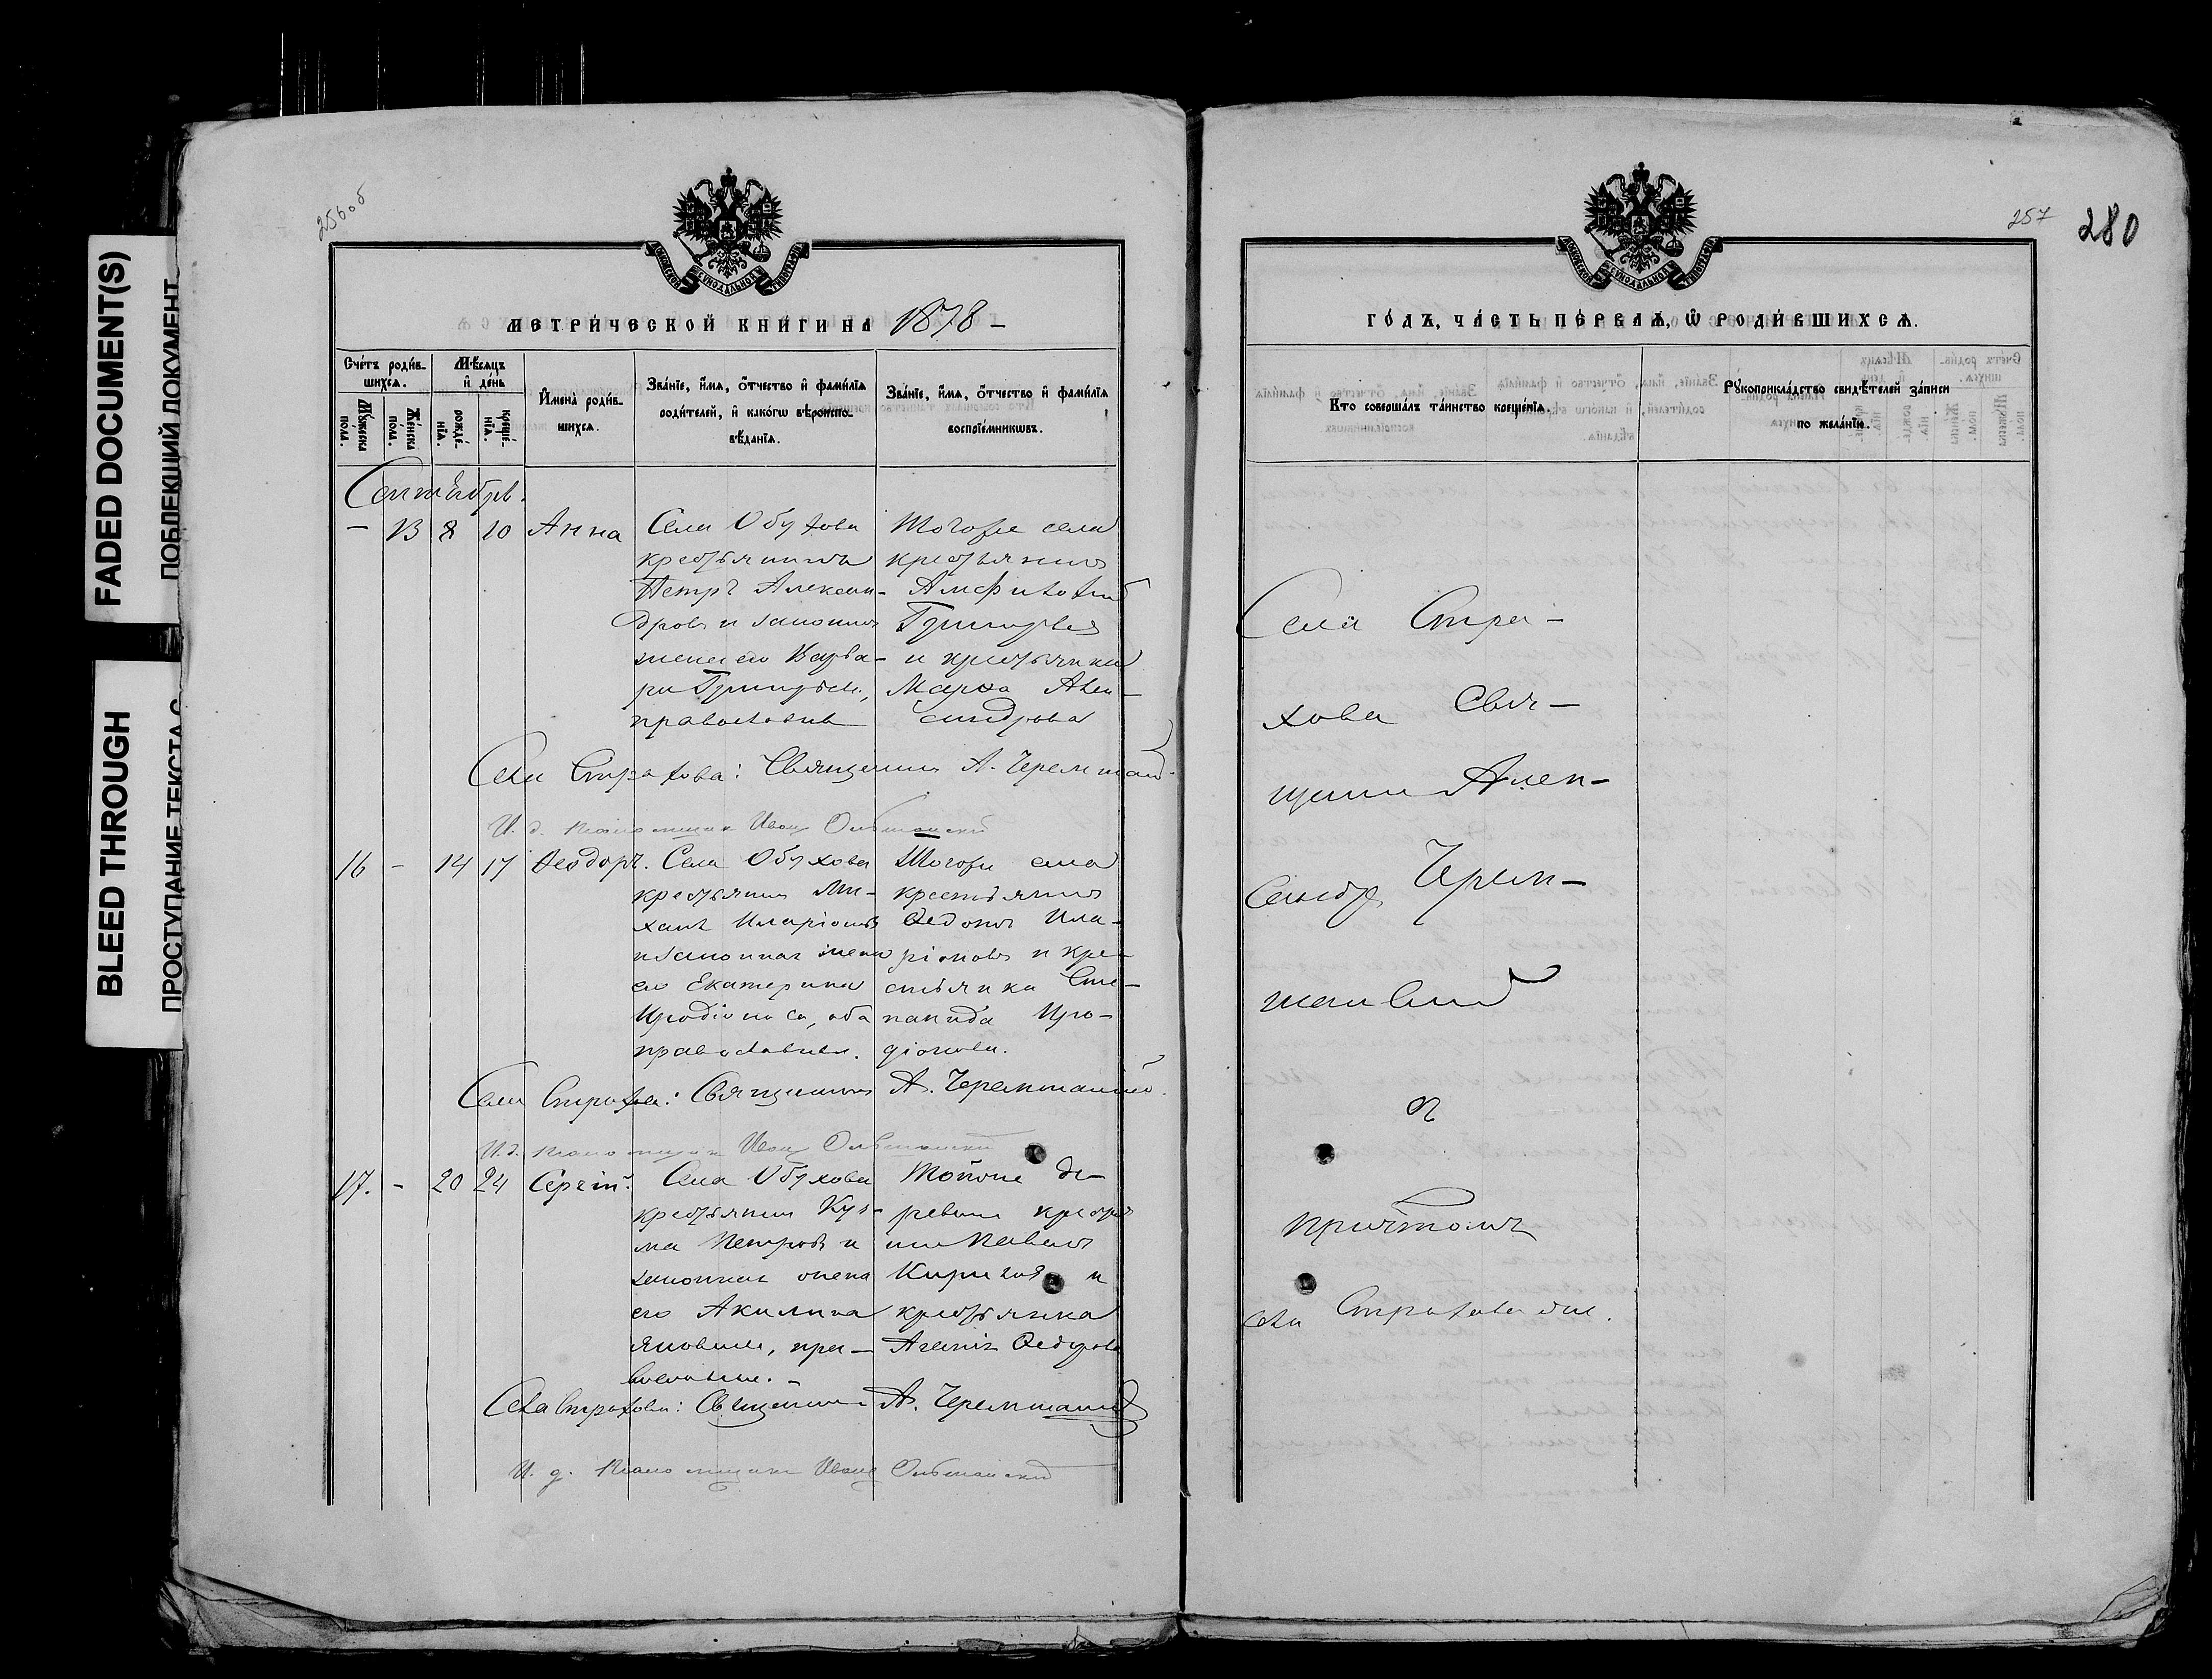 FADED DOCUMENT(S)
ПОБЛЕКШИЙ ДОКУМЕНТ
BLEED THROUGH
ПРОСТУПАНИЕ ТЕКСТА С
256об
МЕТРИ́ЧЕСКОЙ КНИ́ГИ НА 1878 –
Сче́тъ роди́в-
шихсѧ.
Мѣ́сяцъ
и҆ де́нь
Мꙋ́жеска по́ла.
Же́нска по́ла.
рожде́-
нїѧ.
креще́-
нїѧ.
И҆мена̀ роди́в-
шихсѧ.
Зва́нїе, и҆́мѧ, ѻ҆́тчество и҆ фами́лїѧ
роди́телей, и҆ како́гѡ вѣроиспо-
вѣ́данїѧ.
Зва́нїе, и҆́мѧ, ѻ҆́тчество и҆ фами́лїѧ
воспрїе́мникѡвъ.
Сентябрь.
– 13 8 10 Анна
Села Обухова
крестьянинъ
Петръ Алексан-
дровъ и законная
жена его Варва-
ра Григорьева,
православные
Тогоже села
крестьянинъ
Амфилохій
Григорьевъ
и крестьянка
Марѳа Алек-
сандрова
Села Страхова: Священникъ А. Черемшанскій
И. д. псаломщика Иванъ
16 – 14 17 Ѳеодоръ.
Села Обухова
крестьянинъ Ми-
хаилъ Иларіоновъ
и законная жена
его Екатерина
Иродіонова, оба
православные.
Тогоже села
крестьянинъ
Ѳедотъ Ила-
ріоновъ и кре-
стьянка Сте-
панида Иро-
діонова.
Села Страхова: Священникъ А. Черемшанскій.
И. д. псаломщика Иванъ
17. – 20 24 Сергій.
Села Обухова
крестьянинъ Кузь-
ма Петровъ и
законная жена
его Акилина
Яковлева, пра-
вославные. –
Тойже де-
ревни крестья-
нинъ Павелъ
и
крестьянка
Ѳедорова
Села Страхова: Священникъ А. Черемшанскій
И. д. псаломщика Иванъ
257
280
ГО́ДЪ, ЧА́СТЬ ПЕ́РВАѦ, Ѽ РОДИ́ВШИХСѦ.
Кто̀ соверша́лъ та́инство креще́нїѧ.
Рꙋкоприкла́дство свидѣ́телей за́писи
по жела́нїю.
Села Стра-
хова Свя-
щенникъ Алек-
сандръ Черем-
шанскій
съ
причтомъ
села Страхова